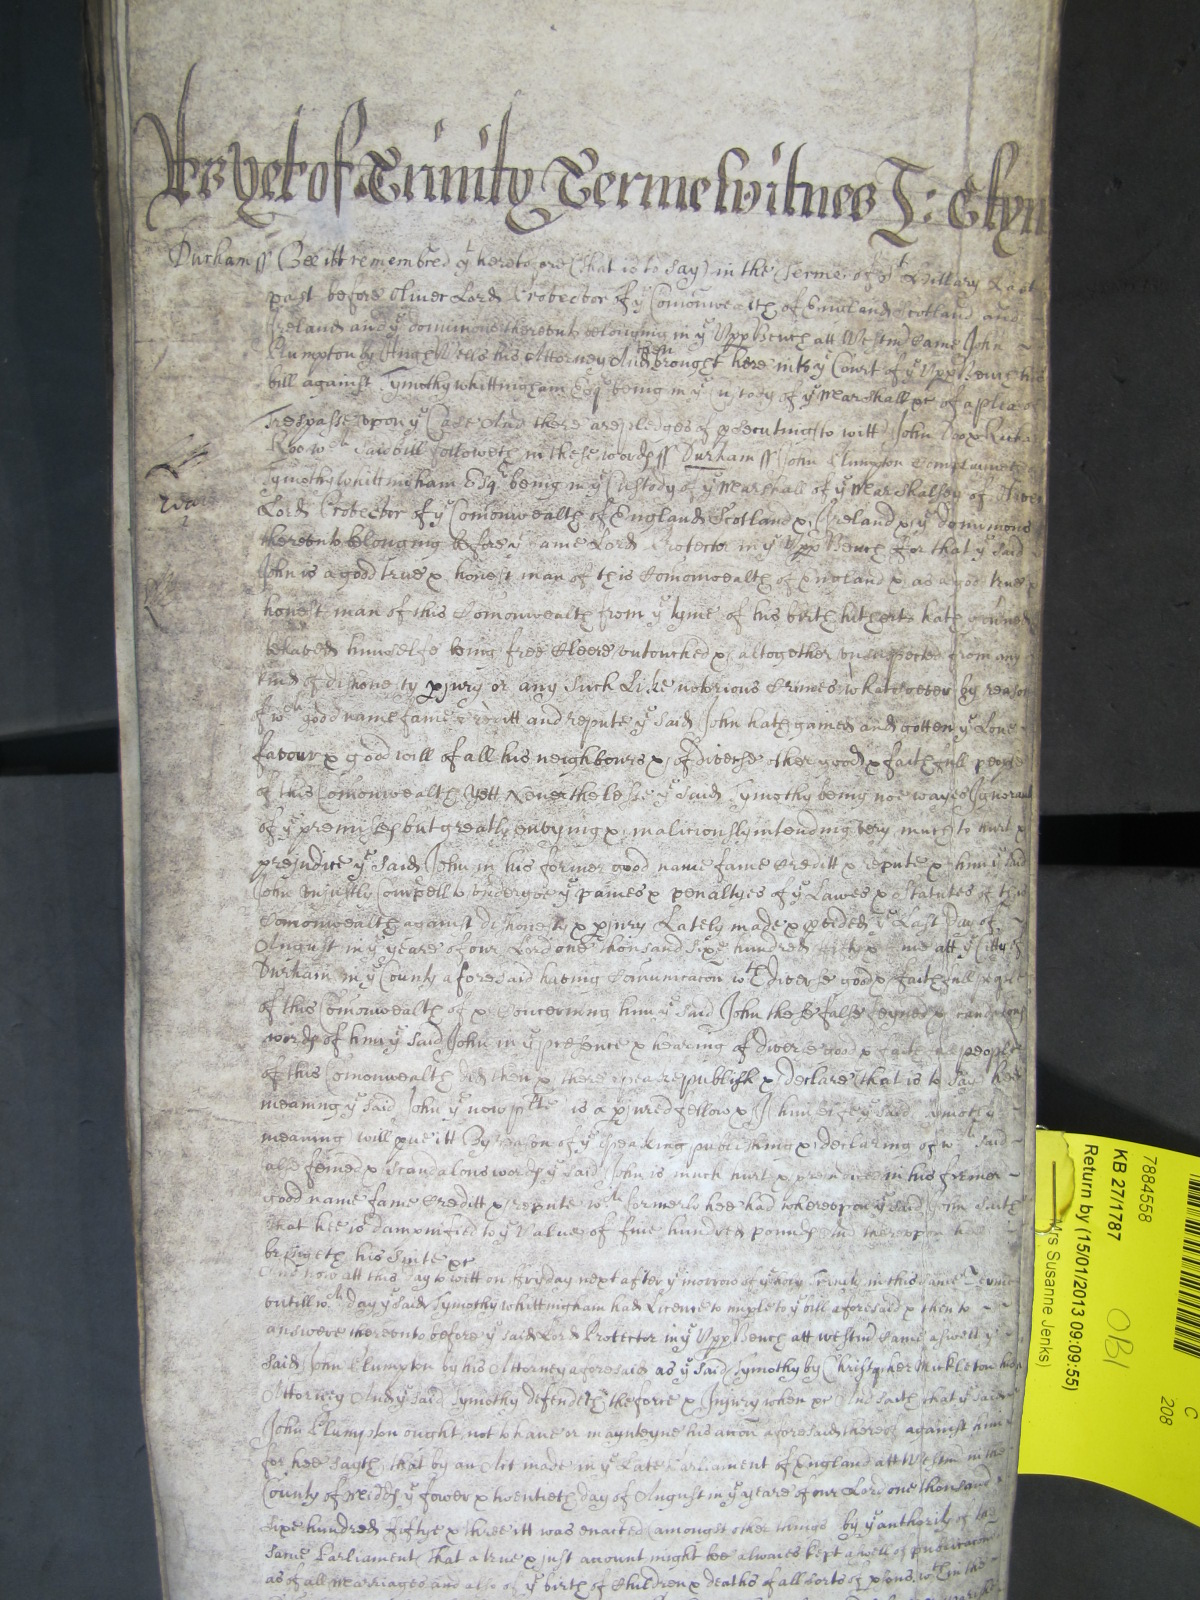 As yet of Trinity Terme Witnes J: Glyn
Durham ss Bee itt remembred yt heretofore (that is to say) in the Terme of St Hillary Last
past before Oliver Lord Protector of ye Comonwealth of England Scotland and
Ireland and ye dominions thereunto belonging in ye Upp Bench att Westm Came John
Plumpton by Hugh his Attorney And brought here into ye Court of ye Upp Bench his
bill against Tymothy Whittingham Esqr being in ye Custody of ye Marshall &c of a plea of
Trespasse upon ye Case And there are pledges of psecuting to witt John Doo & Richard
Roo wch said bill followeth in these words ss Durham ss John Plumpton Complaineth of
Tymothy Whittingham Esqr being in ye Custody of ye Marshall of ye Marshalsey of Oliver
Lord Protector of ye Comonwealth of England Scotland & Ireland & ye dominions
thereunto belonging before ye same Lord Protector in ye Upp Bench for that ye said
John is a good true & honest man of this Comonwealth of England & as a good true &
honest man of this Comonwealth from ye tyme of his birth hitherto hath
behaved himselfe being free Cleere untouched & altogether unsuspected from any
kind of dishonesty pjury or any such Like notorious Crimes whatsoever by reason
of wch good name fame Creditt and repute ye said John hath gained and gotten ye Love
favour & good will of all his neighbours & of diverse other good & faithfull people
of this Comonwealth Yett Neverthelesse ye said Tymothy being noe wayes Ignorant
of ye premises but greatly envying & maliciously intending very much to hurt &
prejudice ye said John in his former good name fame Creditt & repute & him ye said
John Unjustly Compell to undergoe ye paines & penaltyes of ye Lawes & Statutes of this
Comonwealth against dishonesty & pjury Lately made & pvided ye Last day of
August in ye yeare of our Lord one thousand Sixe hundred fifty & att ye Citty of
Durham in ye County aforesaid having Comunicacon wth diverse good & faithfull people
of this Comonwealth of & Concerning him ye said John these false feyned & scandalous
words of him ye said John in ye presence & hearing of diverse good & faithfull people
of this Comonwealth did then & there speake publish & declare that is to say hee
meaning ye said John ye now plt is a pjured fellow & I himselfe ye said Tymothy
meaning will pve itt By reason of ye speaking publishing & declaring of wch said
false feined & scandalous words ye said John is much hurt & prejudiced in his former
good name fame Creditt & repute wch formerly hee had whereupon ye said John saith
that hee is dampnified to ye Value of five hundred pounds And thereupon hee
bringeth his Suite &c
And now att this day to witt on fryday next after ye morrow of ye holy Trinity in this same Terme
untill wch day ye said Tymothy Whittingham had Licence to imple to ye bill aforesaid & then to
answere thereunto before ye said Lord Protector in ye Upp Bench att Westm Came aswell ye
said John Plumpton by his Attorney aforesaid as ye said Tymothy by Christopher Mickleton his
Attorney And ye said Tymothy defendeth the force & Injury when &c And saith that ye said
John Plumpton ought not to have or maynteyne his accon aforesaid thereof against him
for hee sayth that by an Act made in ye Late Parliament of England att Westm in the
County of Midds ye fower & twentieth day of August in ye yeare of our Lord one thousand
sixe hundred fiftye & three itt was enacted amongst other things by ye authority of the
same Parliament That a true & just account might bee alwaies kept aswell of publicacons
as of all Marriages and also of ye birth of Children & deaths of all sorts of psons wthin this
7884558
KB 27/1787
Return by (15/01/2013 09:09:55)
Mrs Susanne Jenks)
OB1
C
208